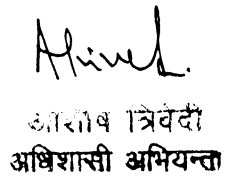 आशीष त्रिवेदी
अधिशासी अभियन्ता